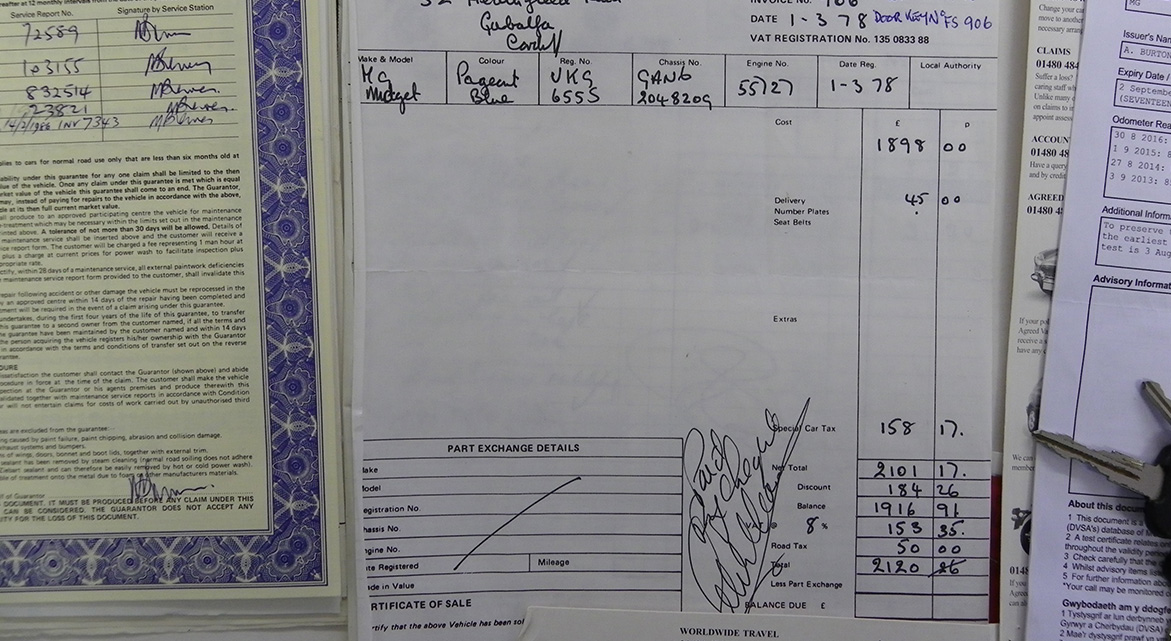 Service Report No. Signature by Service Station
72589
103155
832514
23821
14/2/1986 INV 7343
lies to cars for normal road use only that are less than six months old at
ability under this guarantee for any one claim shall be limited to the then
lue of the vehicle. Once any claim under this guarantee is met which is equal
rket value of the vehicle this guarantee shall come to an end. The Guarantor,
may, instead of paying for repairs to the vehicle in accordance with the above,
le at its then full current market value.
ll produce to an approved participating centre the vehicle for maintenance
e-treatment which may be necessary within the limits set out in the maintenance
inted above. A tolerance of not more than 30 days will be allowed. Details of
maintenance service shall be inserted above and the customer will receive a
ice report form. The customer will be charged a fee representing 1 man hour at
plus a charge at current prices for power wash to facilitate inspection plus
propriate rate.
ctify, within 28 days of a maintenance service, all external paintwork deficiencies
maintenance service report form provided to the customer, shall invalidate this
repair following accident or other damage the vehicle must be reprocessed in the
y an approved centre within 14 days of the repair having been completed and
ment will be required in the event of a claim arising under this guarantee.
undertakes, during the first four years of the life of this guarantee, to transfer
this guarantee to a second owner from the customer named, if all the terms and
he guarantee have been maintained by the customer named and within 14 days
the person acquiring the vehicle registers his/her ownership with the Guarantor
in accordance with the terms and conditions of transfer set out on the reverse
rantee.
DURE
issatisfaction the customer shall contact the Guarantor (shown above) and abide
ocedure in force at the time of the claim. The customer shall make the vehicle
spection at the Guarantor or his agents premises and produce therewith this
alidated together with maintenance service reports in accordance with Condition
r will not entertain claims for costs of work carried out by unauthorised third
eas are excluded from the guarantee:
ng caused by paint failure, paint chipping, abrasion and collision damage.
xhaust systems and bumpers.
s of wings, doors, bonnet and boot lids, together with external trim.
sealant has been removed by steam cleaning (normal road soiling does not adhere
Ziebart sealant and can therefore be easily removed by hot or cold power wash).
ble of treatment onto the metal due to foam or other manufacturers materials.
lf of Guarantor
DOCUMENT. IT MUST BE PRODUCED BEFORE ANY CLAIM UNDER THIS
CAN BE CONSIDERED. THE GUARANTOR DOES NOT ACCEPT ANY
ITY FOR THE LOSS OF THIS DOCUMENT.
Gabalfa
Cardiff
INVOICE No. 106
DATE 1-3 78 DOOR KEY No FS 906
VAT REGISTRATION No. 135 0833 88
Make & Model Colour Reg. No. Chassis No. Engine No. Date Reg. Local Authority
MG Midget Pageant Blue VKG 655S GAN6 204820G 55727 1-3 78
Cost £ p
1898 00
Delivery 45 00
Number Plates
Seat Belts
Extras
Special Car Tax 158 17.
PART EXCHANGE DETAILS
Make
Model
Registration No.
Chassis No.
Engine No.
Date Registered Mileage
Trade in Value
Paid
By Cheque
Net Total 2101 17.
Discount 184 26
Balance 1916 91
@ 8 % 153 35.
Road Tax 50 00
Total 2120 26
Less Part Exchange
BALANCE DUE £
RTIFICATE OF SALE
rtify that the above Vehicle has been sol
WORLDWIDE TRAVEL
Change your ca
move to another
necessary arran
CLAIMS
01480 484
Suffer a loss?
caring staff wh
Unlike many
on claims to
appoint assess
ACCOUN
01480 48
Have a query
and by credit
AGREED
01480 4
If your pol
Agreed Va
receive a
have any c
We can
member
0148
If you
Agree
can al
MG
Issuer's Nam
A. BURTON
Expiry Date /
2 Septembe
(SEVENTEEN
Odometer Rea
30 8 2016:
1 9 2015: 8
27 8 2014:
3 9 2013: 8
Additional Inform
To preserve
the earliest
test is 3 Aug
Advisory Informat
About this docum
1 This document is a
(DVSA's) database of
2 A test certificate relates
throughout the validity perio
3 Check carefully that the
4 Whilst advisory items
5 For further information abo
*Your call may be monitored
Gwybodaeth am y ddogfe
1 Tystysgrif ar lun derbynneb
Gyrwyr a Cherbydau (DVSA)
2 Mae'r dystysgrif prawf